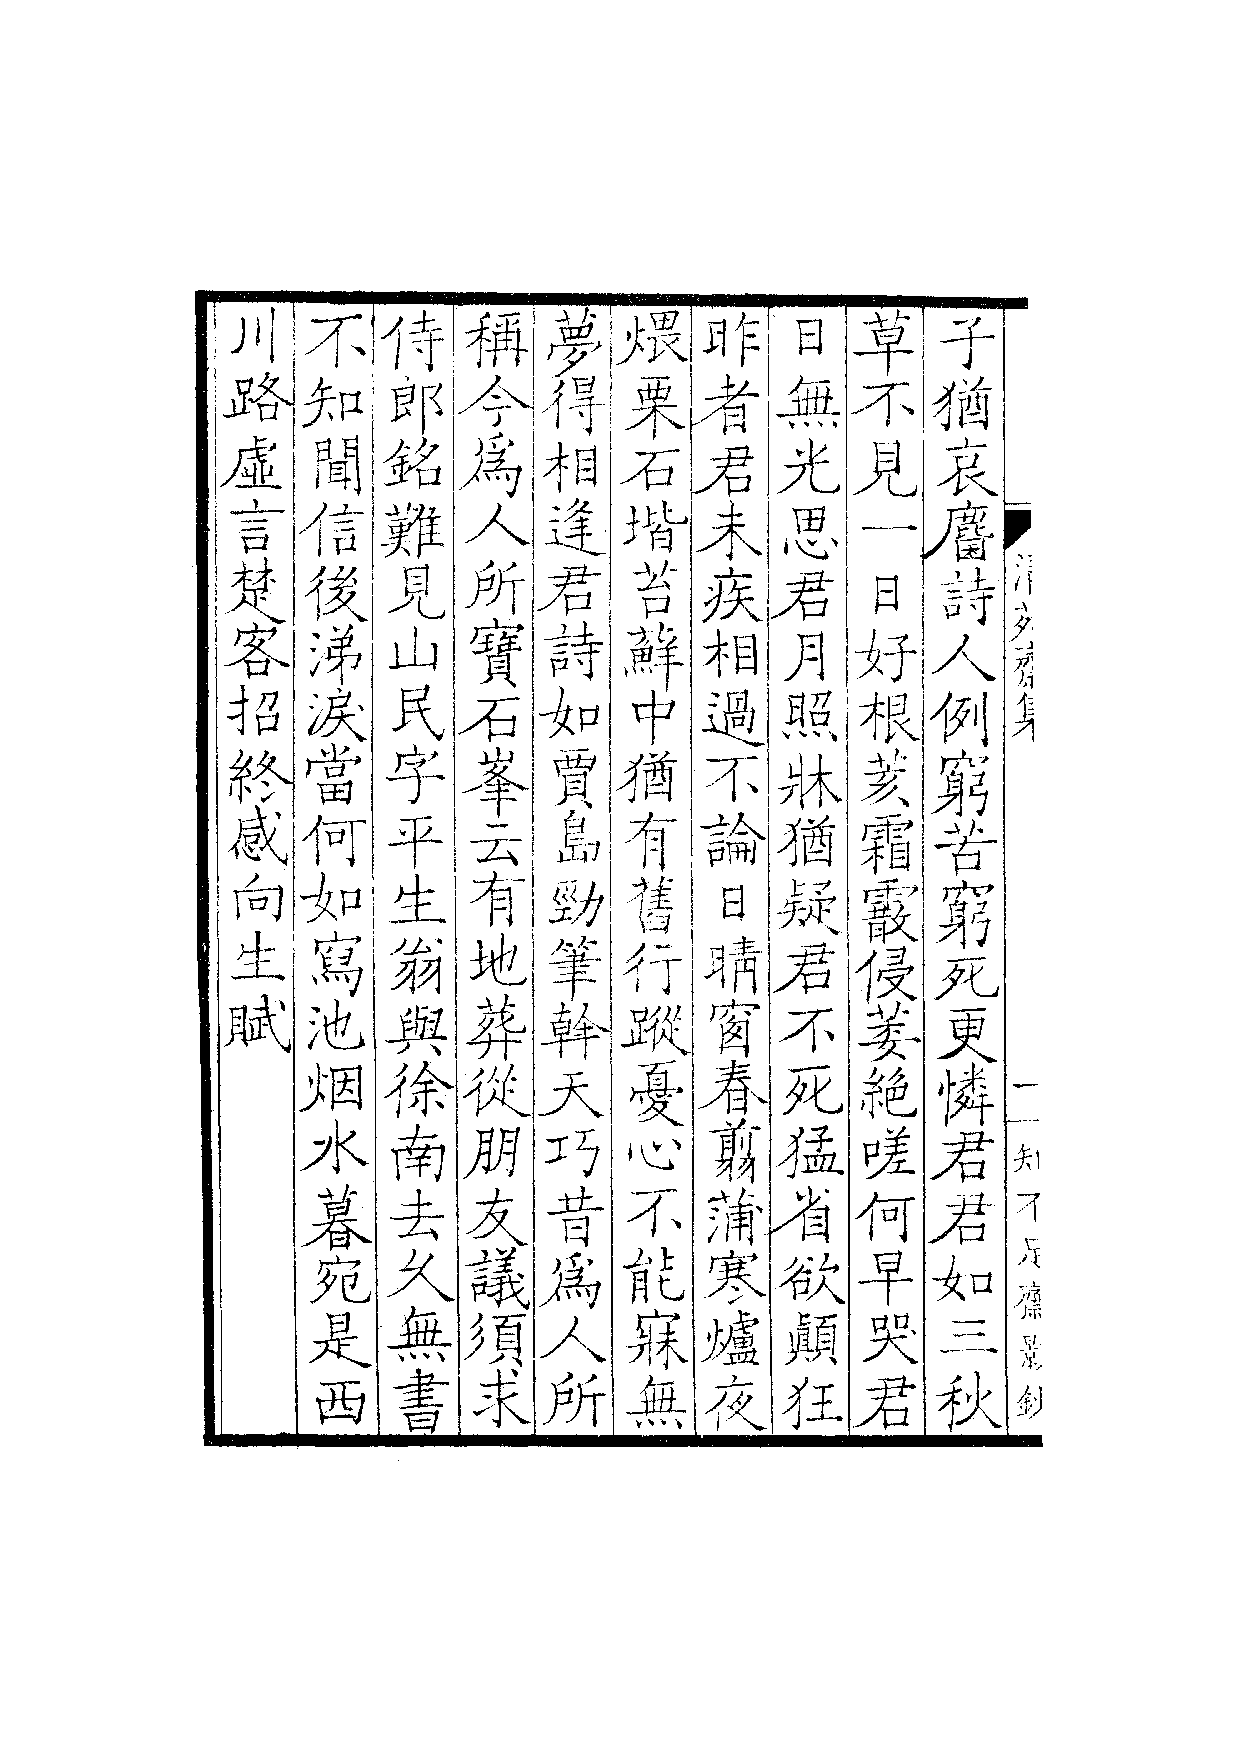 清苑齋集 一 知不足齋影鈔
子猶哀麕詩人例窮苦窮死更憐君君如三秋
草不見一日好根荄霜霰侵萎絶嗟何早哭君
日無光思君月照牀猶疑君不死猛省欲顛狂
昨者君未疾相過不論日晴窗春翦蒲寒爐夜
煨栗石堦苔蘚中猶有舊行蹤憂心不能寐無
夢得相逢君詩如賈島勁筆斡天巧昔爲人所
稱今爲人所寶石峯云有地葬從朋友議須求
侍郎銘難見山民字平生翁與徐南去久無書
不知聞信後涕淚當何如寫池烟水暮宛是西
川路虛言楚客招終感向生賦